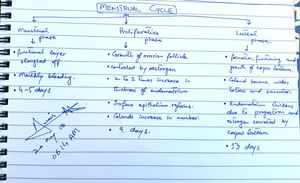 MENSTRUAL CYCLE
Menstrual
phase
functional layer
sloughed off
Monthly bleeding.
4-5 days
Proliferative
phase
Growth of ovarian follicle.
controlled by oestrogen
2 to 3 times increase in
thickness of endometrium
Surface epithelium reforms.
Glands increase in number.
9 days.
Luteal
phase
formation, functioning and
growth of corpus luteum.
Gland become wider
tortous and vascular.
Endometrium thickens
due to progesterone and
estrogen secreted by
corpus luteum.
13 days
20 may 18
06:14 AM